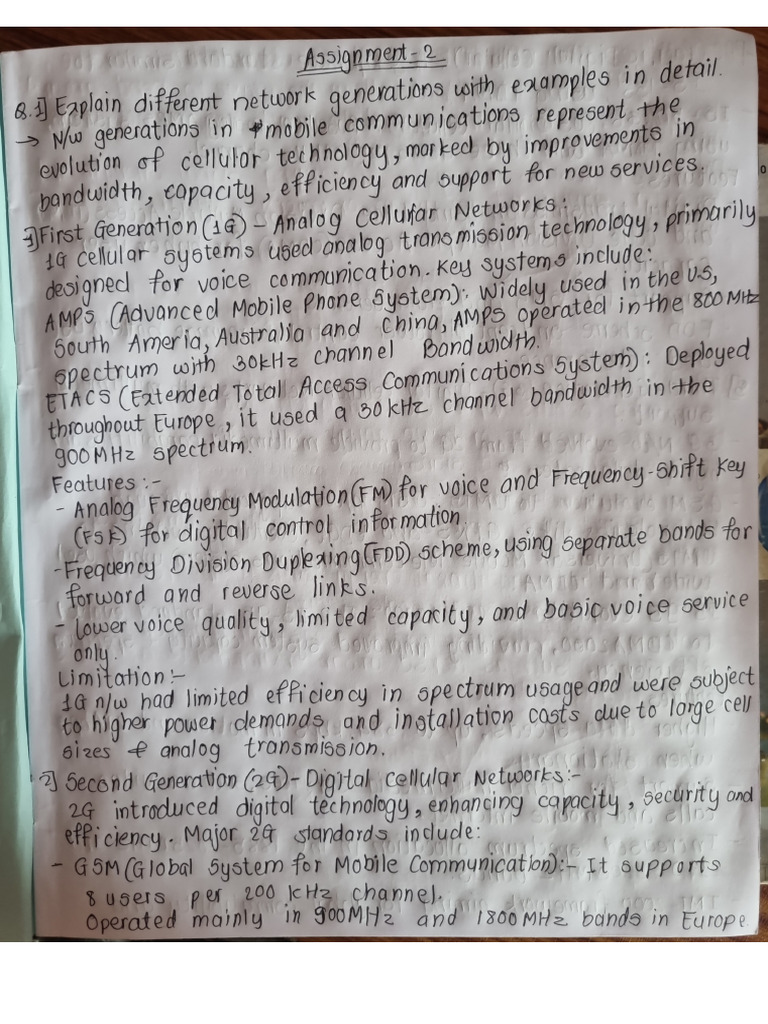 Assignment-2
Q.1] Explain different network generations with examples in detail.
→ N/w generations in mobile communications represent the
evolution of cellular technology, marked by improvements in
bandwidth, capacity, efficiency and support for new services.
1] First Generation (1G) - Analog Cellular Networks:
1G cellular systems used analog transmission technology, primarily
designed for voice communication. Key systems include:
AMPS (Advanced Mobile Phone System): Widely used in the U.S,
South Ameria, Australia and China, AMPS operated in the 800 MHz
spectrum with 30kHz channel Bandwidth.
ETACS (Extended Total Access Communications System): Deployed
throughout Europe, it used a 30 kHz channel bandwidth in the
900 MHz spectrum.
Features :-
- Analog Frequency Modulation (FM) for voice and Frequency-Shift Key
(FSK) for digital control information.
- Frequency Division Duplexing (FDD) scheme, using separate bands for
forward and reverse links.
- Lower voice quality, limited capacity, and basic voice service
only.
Limitation :-
1G n/w had limited efficiency in spectrum usage and were subject
to higher power demands and installation costs due to large cell
sizes & analog transmission.
2] Second Generation (2G) - Digital Cellular Networks :-
2G introduced digital technology, enhancing capacity, security and
efficiency. Major 2G standards include:
- GSM (Global System for Mobile Communication) :- It supports
8 users per 200 kHz channel.
Operated mainly in 900MHz and 1800 MHz bands in Europe.